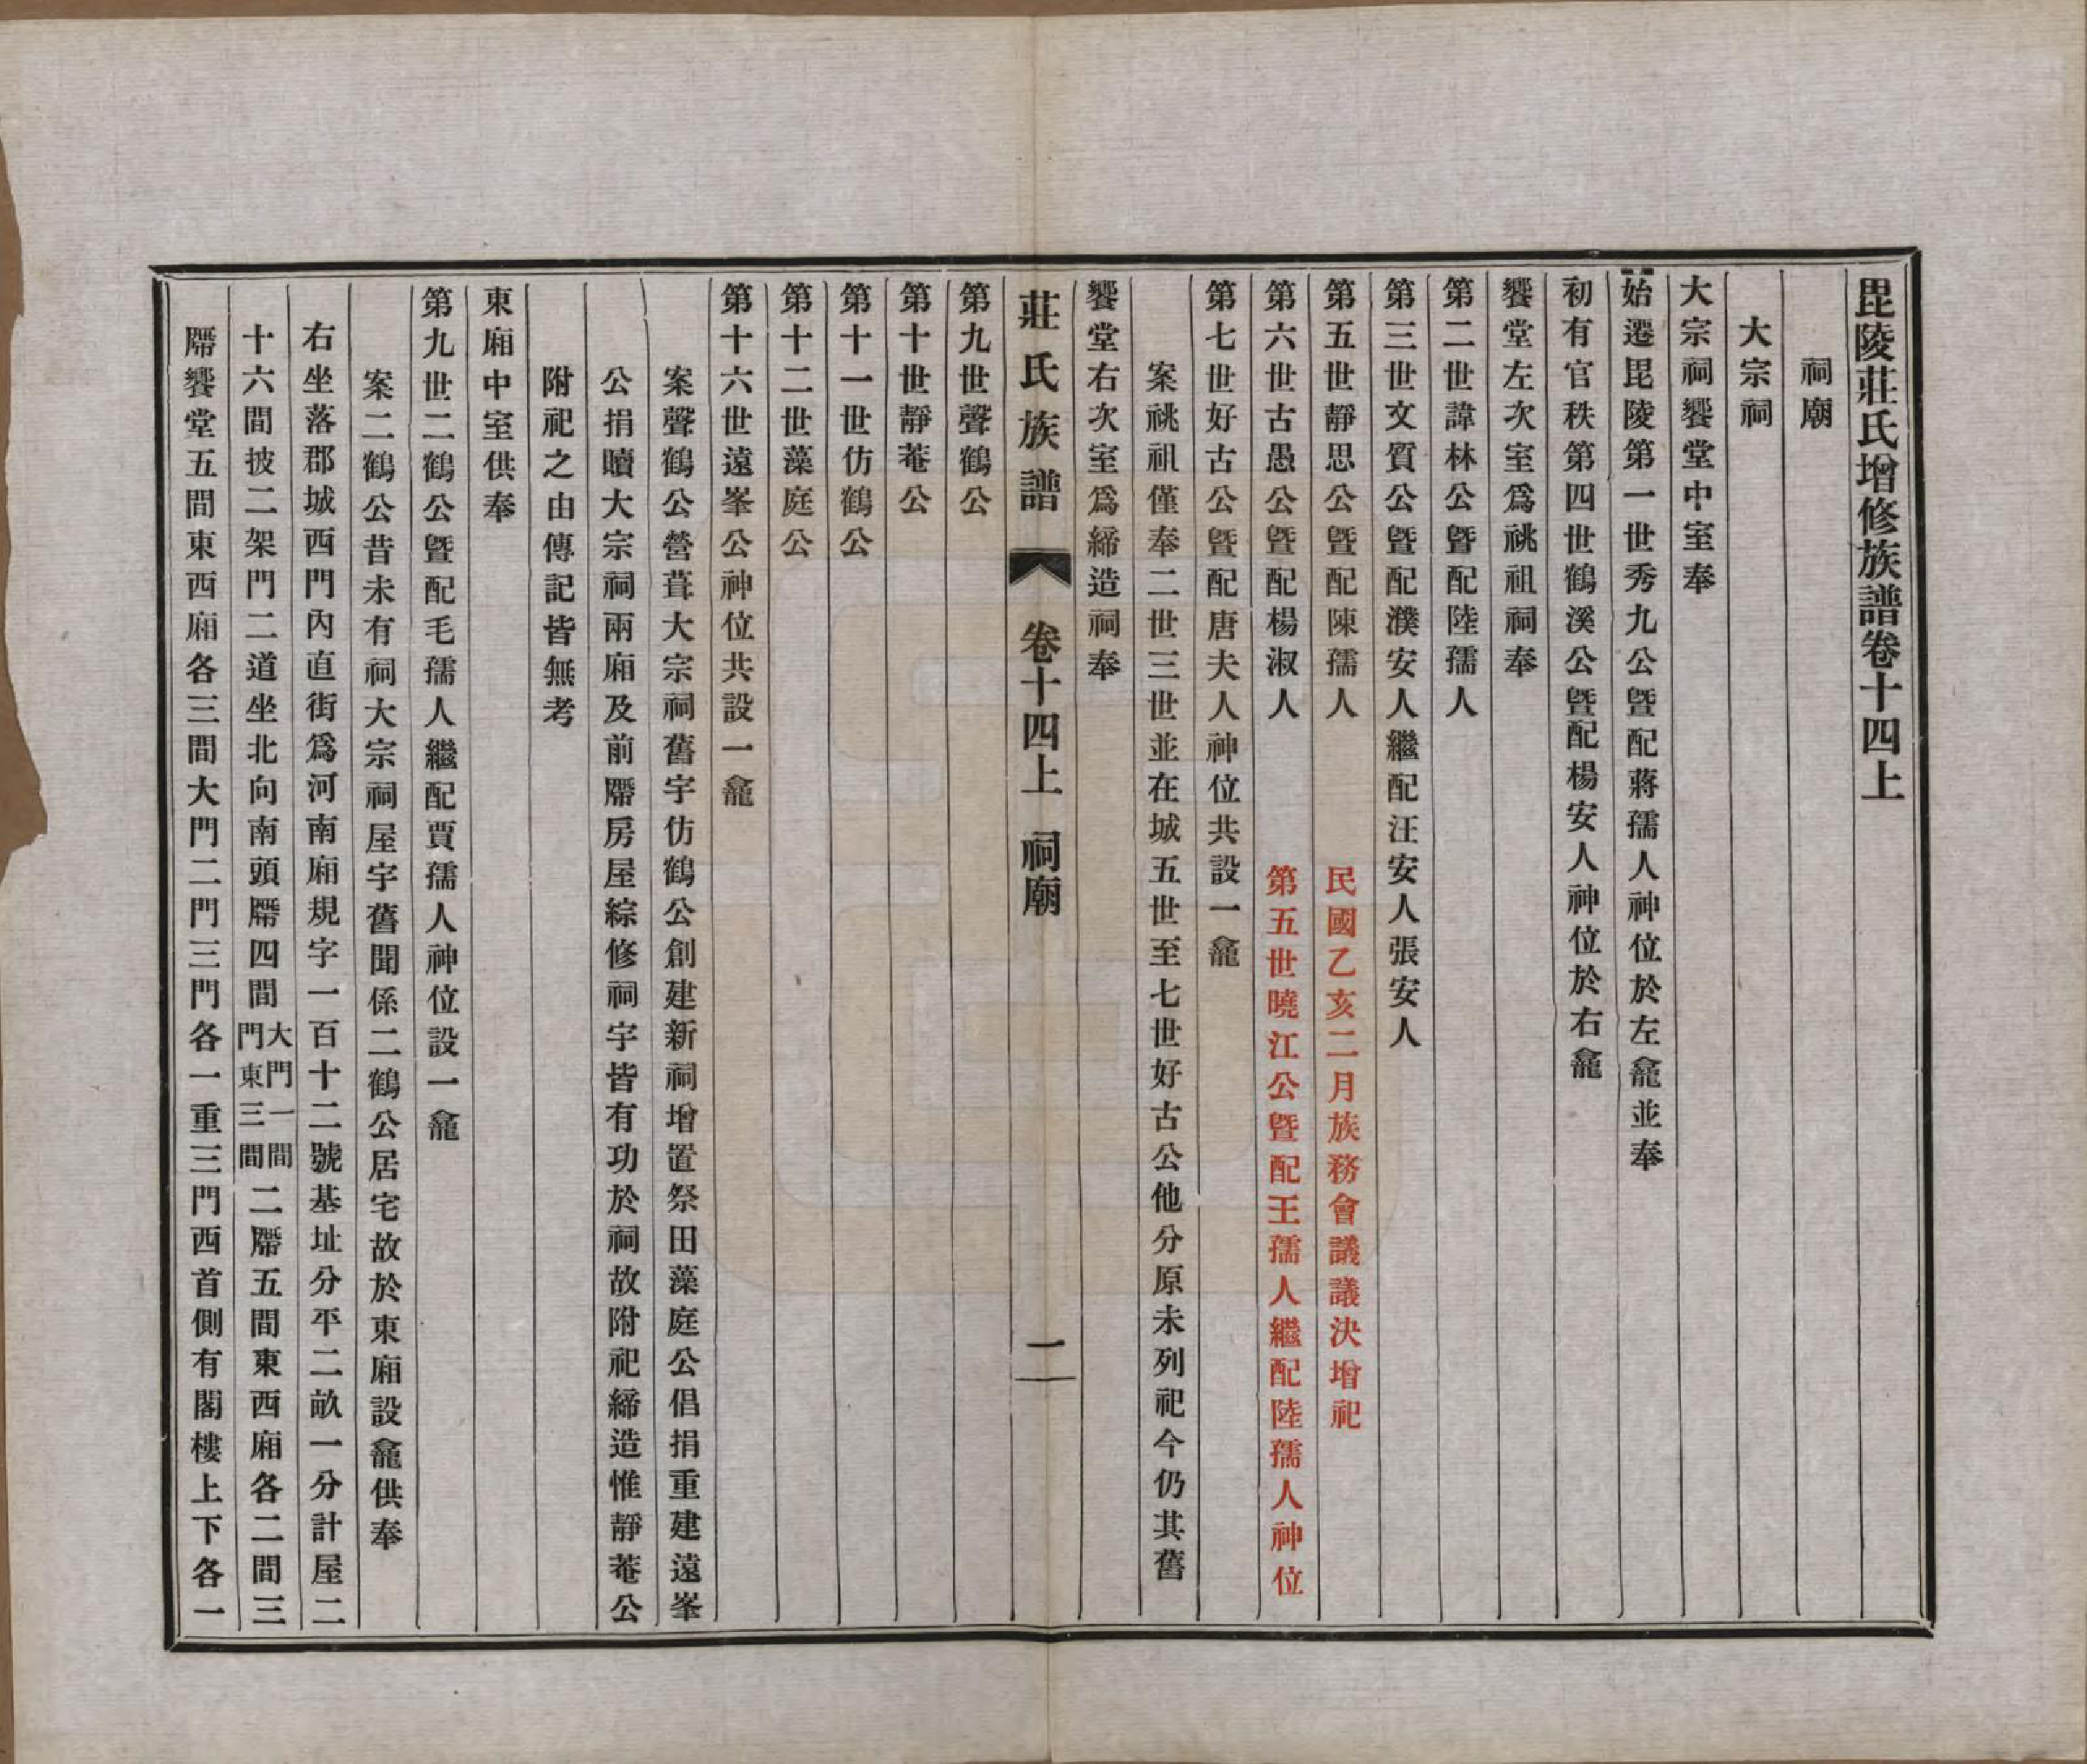 毘陵莊氏增修族譜卷十四上
祠廟
大宗祠
大宗祠饗堂中室奉
始遷毘陵第一世秀九公暨配蔣孺人神位於左龕並奉
初有官秩第四世鶴溪公暨配楊安人神位於右龕
饗堂左次室爲祧祖祠奉
第二世諱林公暨配陸孺人
第三世文質公暨配濮安人繼配汪安人張安人
第五世靜思公暨配陳孺人 民國乙亥二月族務會議議決增祀
第六世古愚公暨配楊淑人 第五世曉江公暨配王孺人繼配陸孺人神位
第七世好古公暨配唐夫人神位共設一龕
案祧祖僅奉二世三世並在城五世至七世好古公他分原未列祀今仍其舊
饗堂右次室爲締造祠奉
莊氏族譜 卷十四上 祠廟 一
第九世聲鶴公
第十世靜菴公
第十一世仿鶴公
第十二世藻庭公
第十六世遠峯公神位共設一龕
案聲鶴公營葺大宗祠舊宇仿鶴公創建新祠增置祭田藻庭公倡捐重建遠峯
公捐贖大宗祠兩廂及前隮房屋綜修祠宇皆有功於祠故附祀締造惟靜菴公
附祀之由傳記皆無考
東廂中室供奉
第九世二鶴公暨配毛孺人繼配賈孺人神位設一龕
案二鶴公昔未有祠大宗祠屋宇舊聞係二鶴公居宅故於東廂設龕供奉
右坐落郡城西門內直街爲河南廂規字一百十二號基址分平二畝一分計屋二
十六間披二架門二道坐北向南頭隮四間大門一間門東三間二隮五間東西廂各二間三
隮饗堂五間東西廂各三間大門二門三門各一重三門西首側有閣樓上下各一